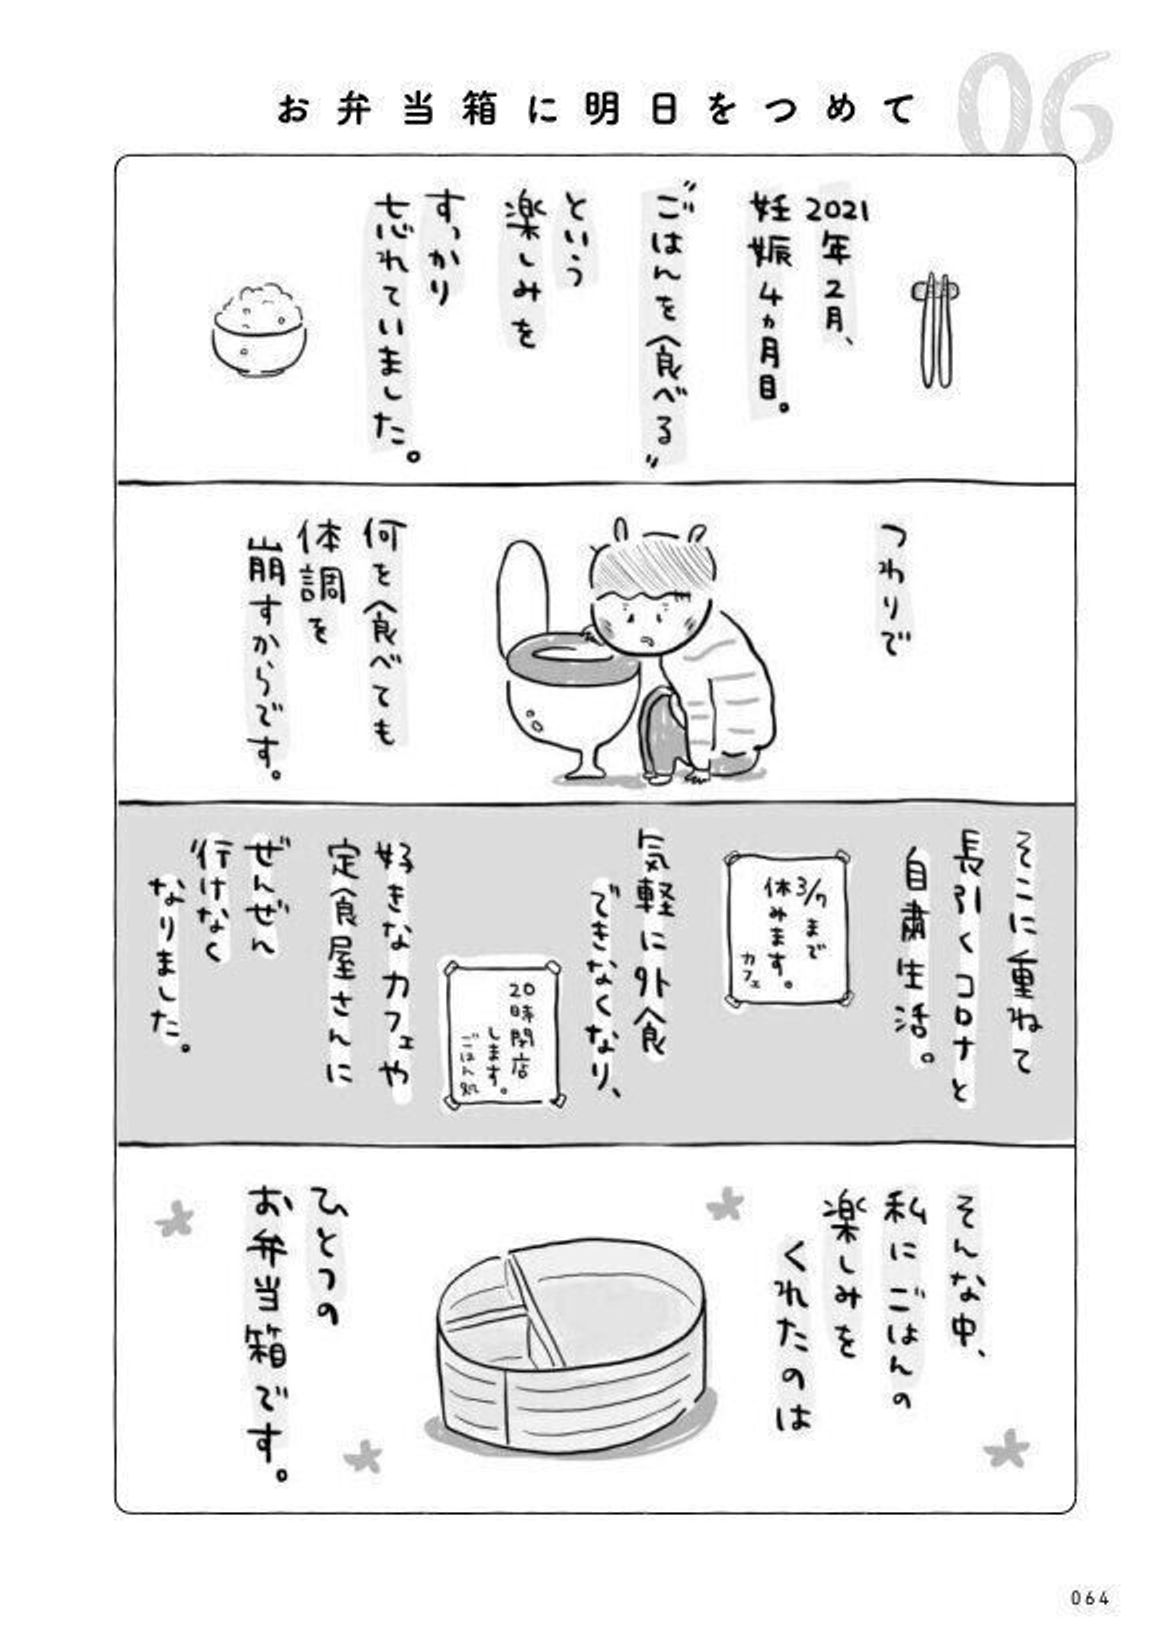 06
お弁当箱に明日をつめて
2021
年2月、
妊娠4ヵ月目。
“ごはんを食べる”
という
楽しみを
すっかり
忘れていました。
つわりで
何を食べても
体調を
崩すからです。
そこに重ねて
長引くコロナと
自粛生活。
3/7まで
休みます。
カフェ
気軽に外食
できなくなり、
20時閉店
します。
ごはん処
好きなカフェや
定食屋さんに
ぜんぜん
行けなく
なりました。
そんな中、
私にごはんの
楽しみを
くれたのは
ひとつの
お弁当箱です。
064